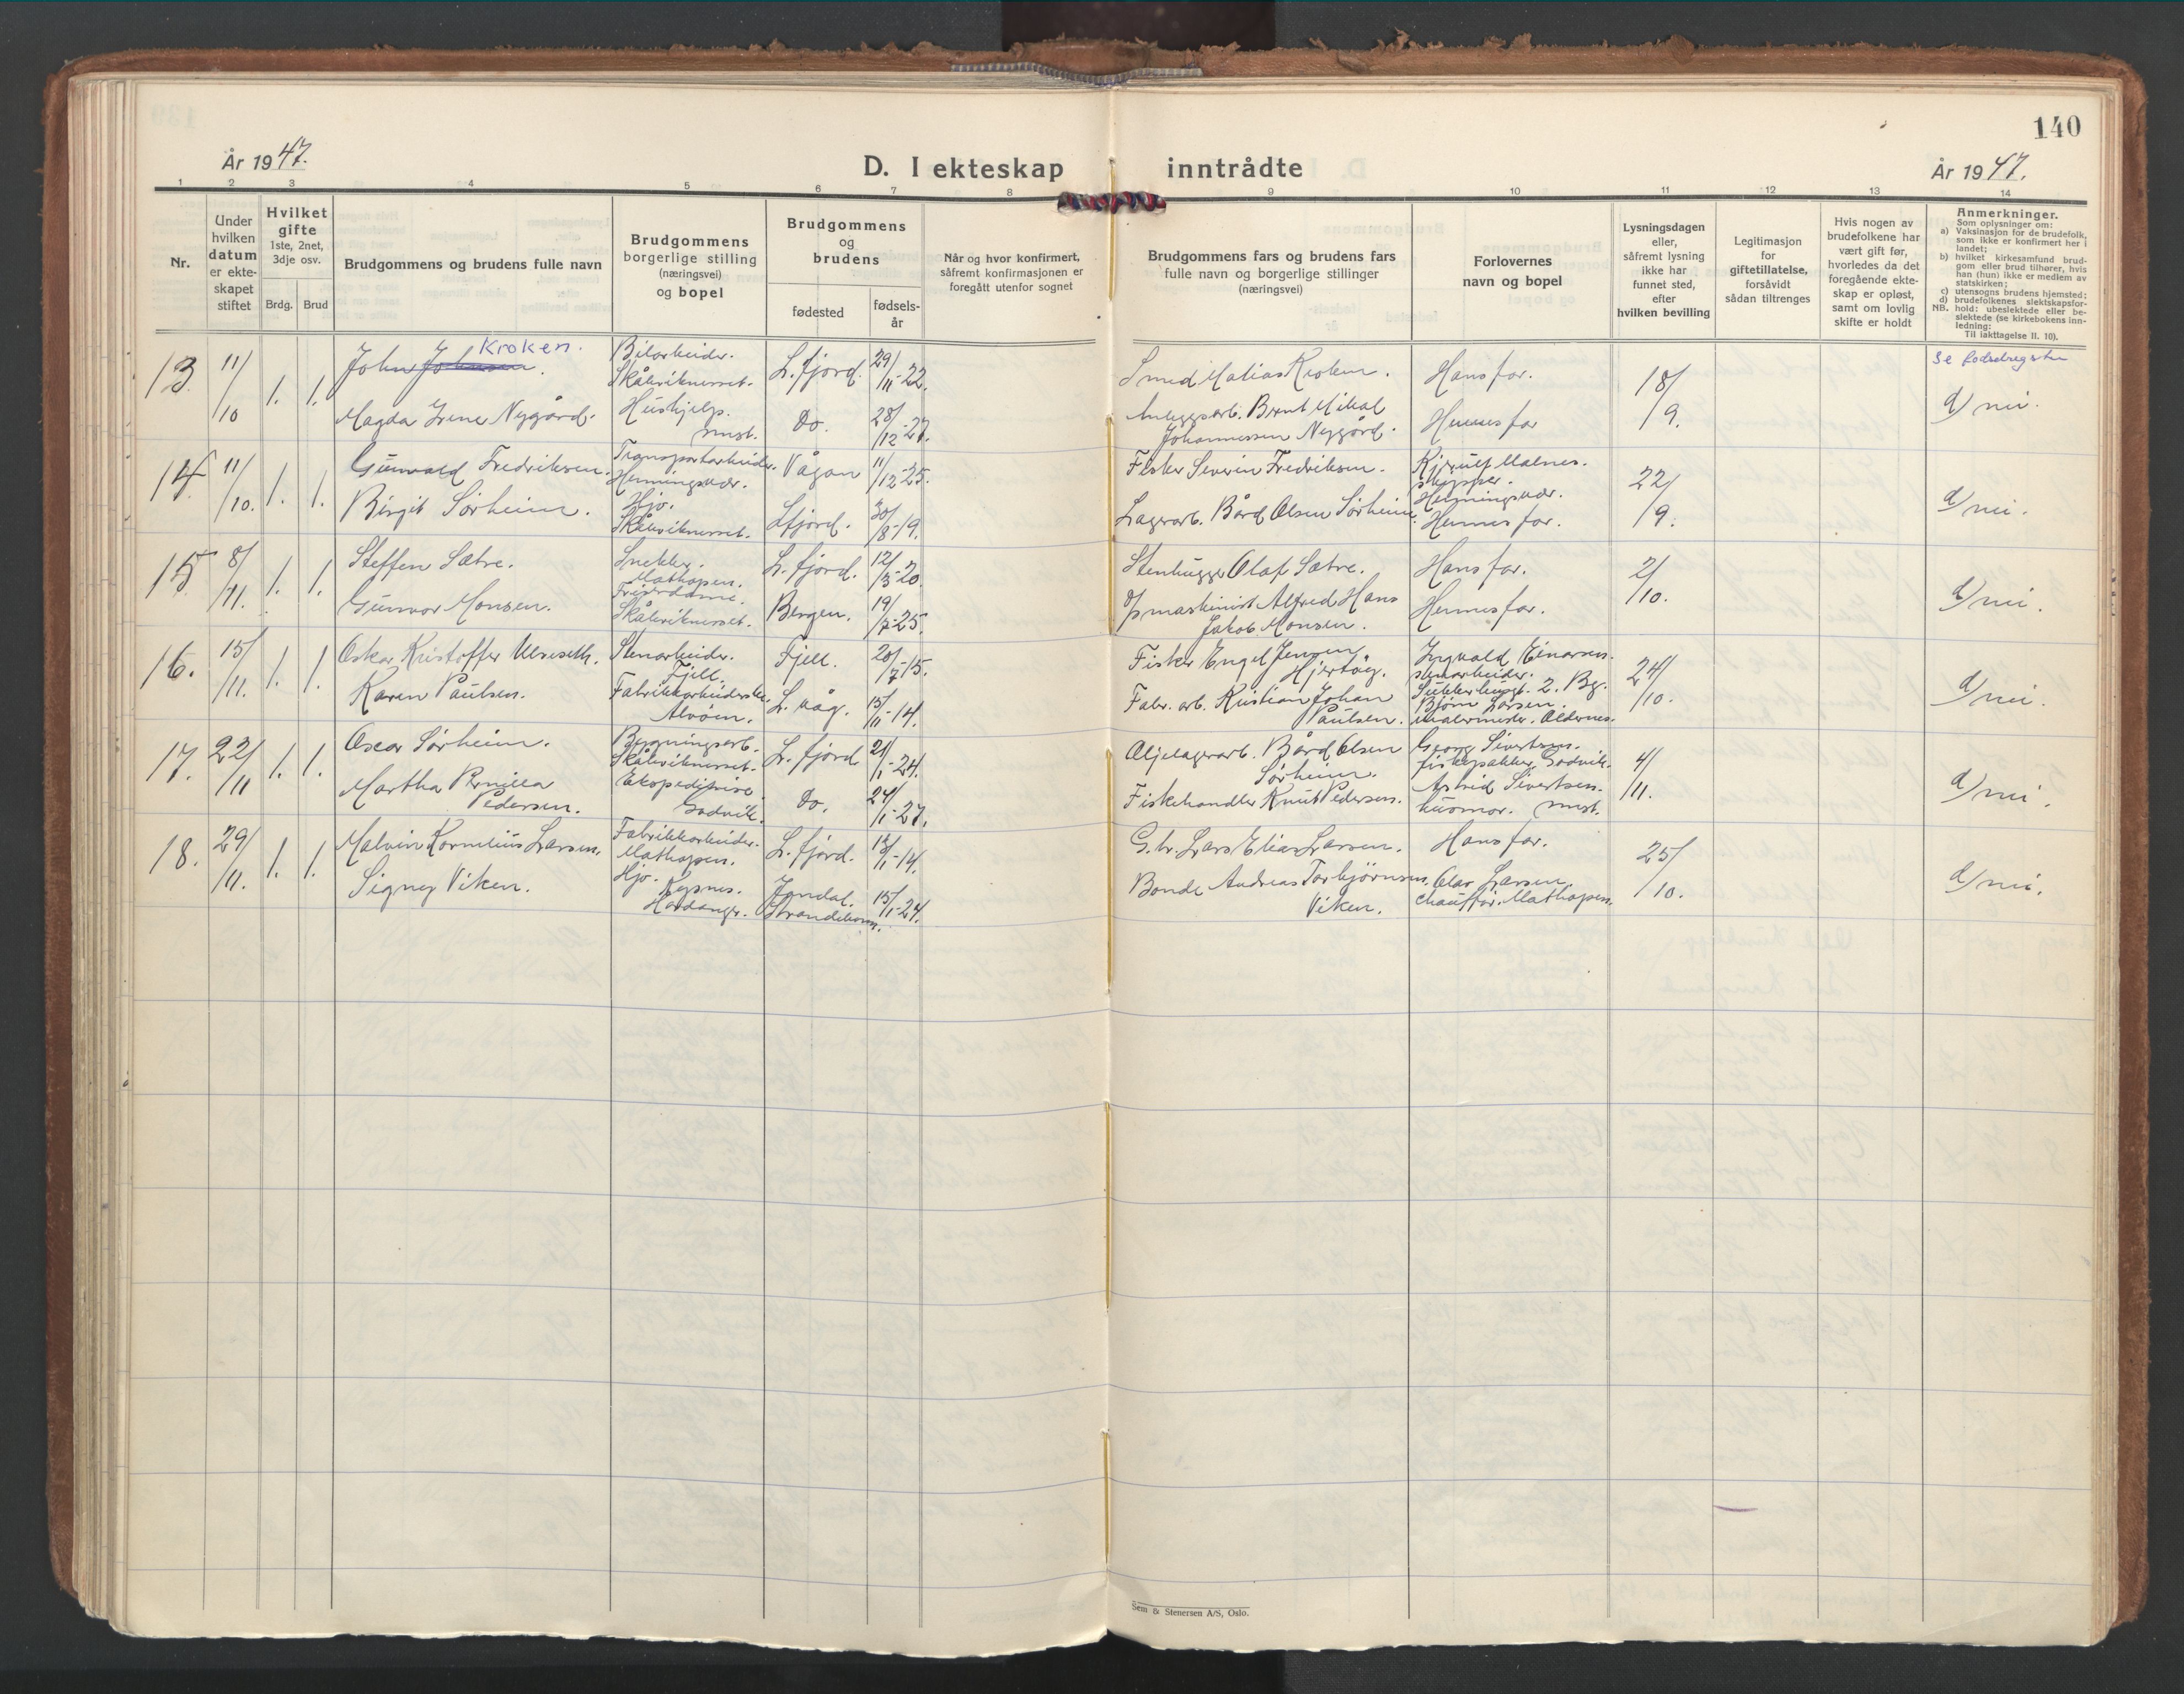 140
År 1947.
D. I ekteskap inntrådte
År 1947.
1 2 3 4 5 6 7 8 9 10 11 12 13 14
Nr.
Under hvilken datum er ekteskapet stiftet
Hvilket gifte
1ste, 2net, 3dje osv.
Brdg. Brud
Brudgommens og brudens fulle navn
Brudgommens borgerlige stilling (næringsvei) og bopel
Brudgommens og brudens
fødested
fødsels-
år
Når og hvor konfirmert,
såfremt konfirmasjonen er
foregått utenfor sognet
Brudgommens fars og brudens fars
fulle navn og borgerlige stillinger
(næringsvei)
Forlovernes
navn og bopel
Lysningsdagen
eller,
såfremt lysning
ikke har
funnet sted,
efter
hvilken bevilling
Legitimasjon
for
giftetillatelse,
forsåvidt
sådan tiltrenges
Hvis nogen av
brudefolkene har
vært gift før,
hvorledes da det
foregående ekte-
skap er opløst,
samt om lovlig
skifte er holdt
Anmerkninger.
Som oplysninger om:
a) Vaksinasjon for de brudefolk,
som ikke er konfirmert her i
landet;
b) hvilket kirkesamfund brud-
gom eller brud tilhører, hvis
han (hun) ikke er medlem av
statskirken;
c) utensogns brudens hjemsted;
d) brudefolkenes slektskapsfor-
hold: ubeslektede eller be-
slektede (se kirkebokens inn-
ledning:
NB. Til iakttagelse II. 10).
13. 11/10 1. 1. John Johnsen Kroken.
Bilarbeider.
Skålviknesset.
L. fjord. 29/11-22.
Smed Matias Kroken. Hans far. 18/9.
Se fødselregister
Magda Irene Nygård.
Hushjelp.
smst.
Do. 28/12-27.
Anleggsarb. Bernt Mikal
Johannessen Nygård.
Hennes far
d) nei.
14. 11/10. 1. 1. Gunvald Fredriksen.
Transportarbeider.
Henningsvær.
Vågan 11/12-25.
Fisker Severin Fredriksen.
Malnes.
skipper.
Henningsvær.
22/9.
Birgit Sørheim.
Hjv.
Skålviknesset.
Lfjord. 30/8-19.
Lagerarb. Bård Olsen Sørheim.
Hennes far.
d) nei.
15. 8/11. 1. 1. Steffen Sætre.
Snekker.
Mathopen.
L. fjord. 12/3-20.
Stenhugger Olaf Sætre. Hans far. 2/10.
Gunvor Monsen.
Friserdame.
Skålviknesset.
Bergen. 19/7-25.
maskinist Alfred Hans
Jakob Monsen.
Hennes far.
d) nei.
16. 15/11. 1. 1. Oskar Kristoffer Ulveseth.
Stenarbeider.
Fjell.
Fjell. 20/7-15.
Fisker Engel Jensen
Hjertøy.
Ingvald Einarsen.
stenarbeider.
24/10.
Karen Paulsen.
Fabrikkarbeiderske.
Alvøen.
L. våg. 15/11-14.
Fabr. arb. Kristian Johan
Paulsen.
Bjørn Larsen.
malermester. Oldernes.
d) nei
17. 22/11 1. 1. Oscar Sørheim.
Bygningsarb.
Skålviknesset.
L. fjord 21/1-24.
Oljelagerarb. Bård Olsen
Sørheim.
Georg Sivertsen.
fiskepakker, Godvik.
4/11.
Martha Pernilla
Pedersen.
Ekspeditrise
Godvik.
Do. 24/1-27.
Fiskehandler Knut Pedersen.
Astrid Sivertsen.
husmor. smst.
d) nei.
18. 29/11. 1. 1. Malvin Kornelius Larsen.
Fabrikkarbeider.
Mathopen.
L. fjord. 13/1-14.
G. br. Lars Elias Larsen. Hans far. 25/10.
Signy Viken.
Hjv. Kysnes.
Hardanger.
Jondal.
Strandebarm.
15/1-24.
Bonde Andreas Torbjørnsen
Viken.
Olav Larsen.
chauffør. Mathopen.
d) nei.
Sem & Stenersen A/S, Oslo.